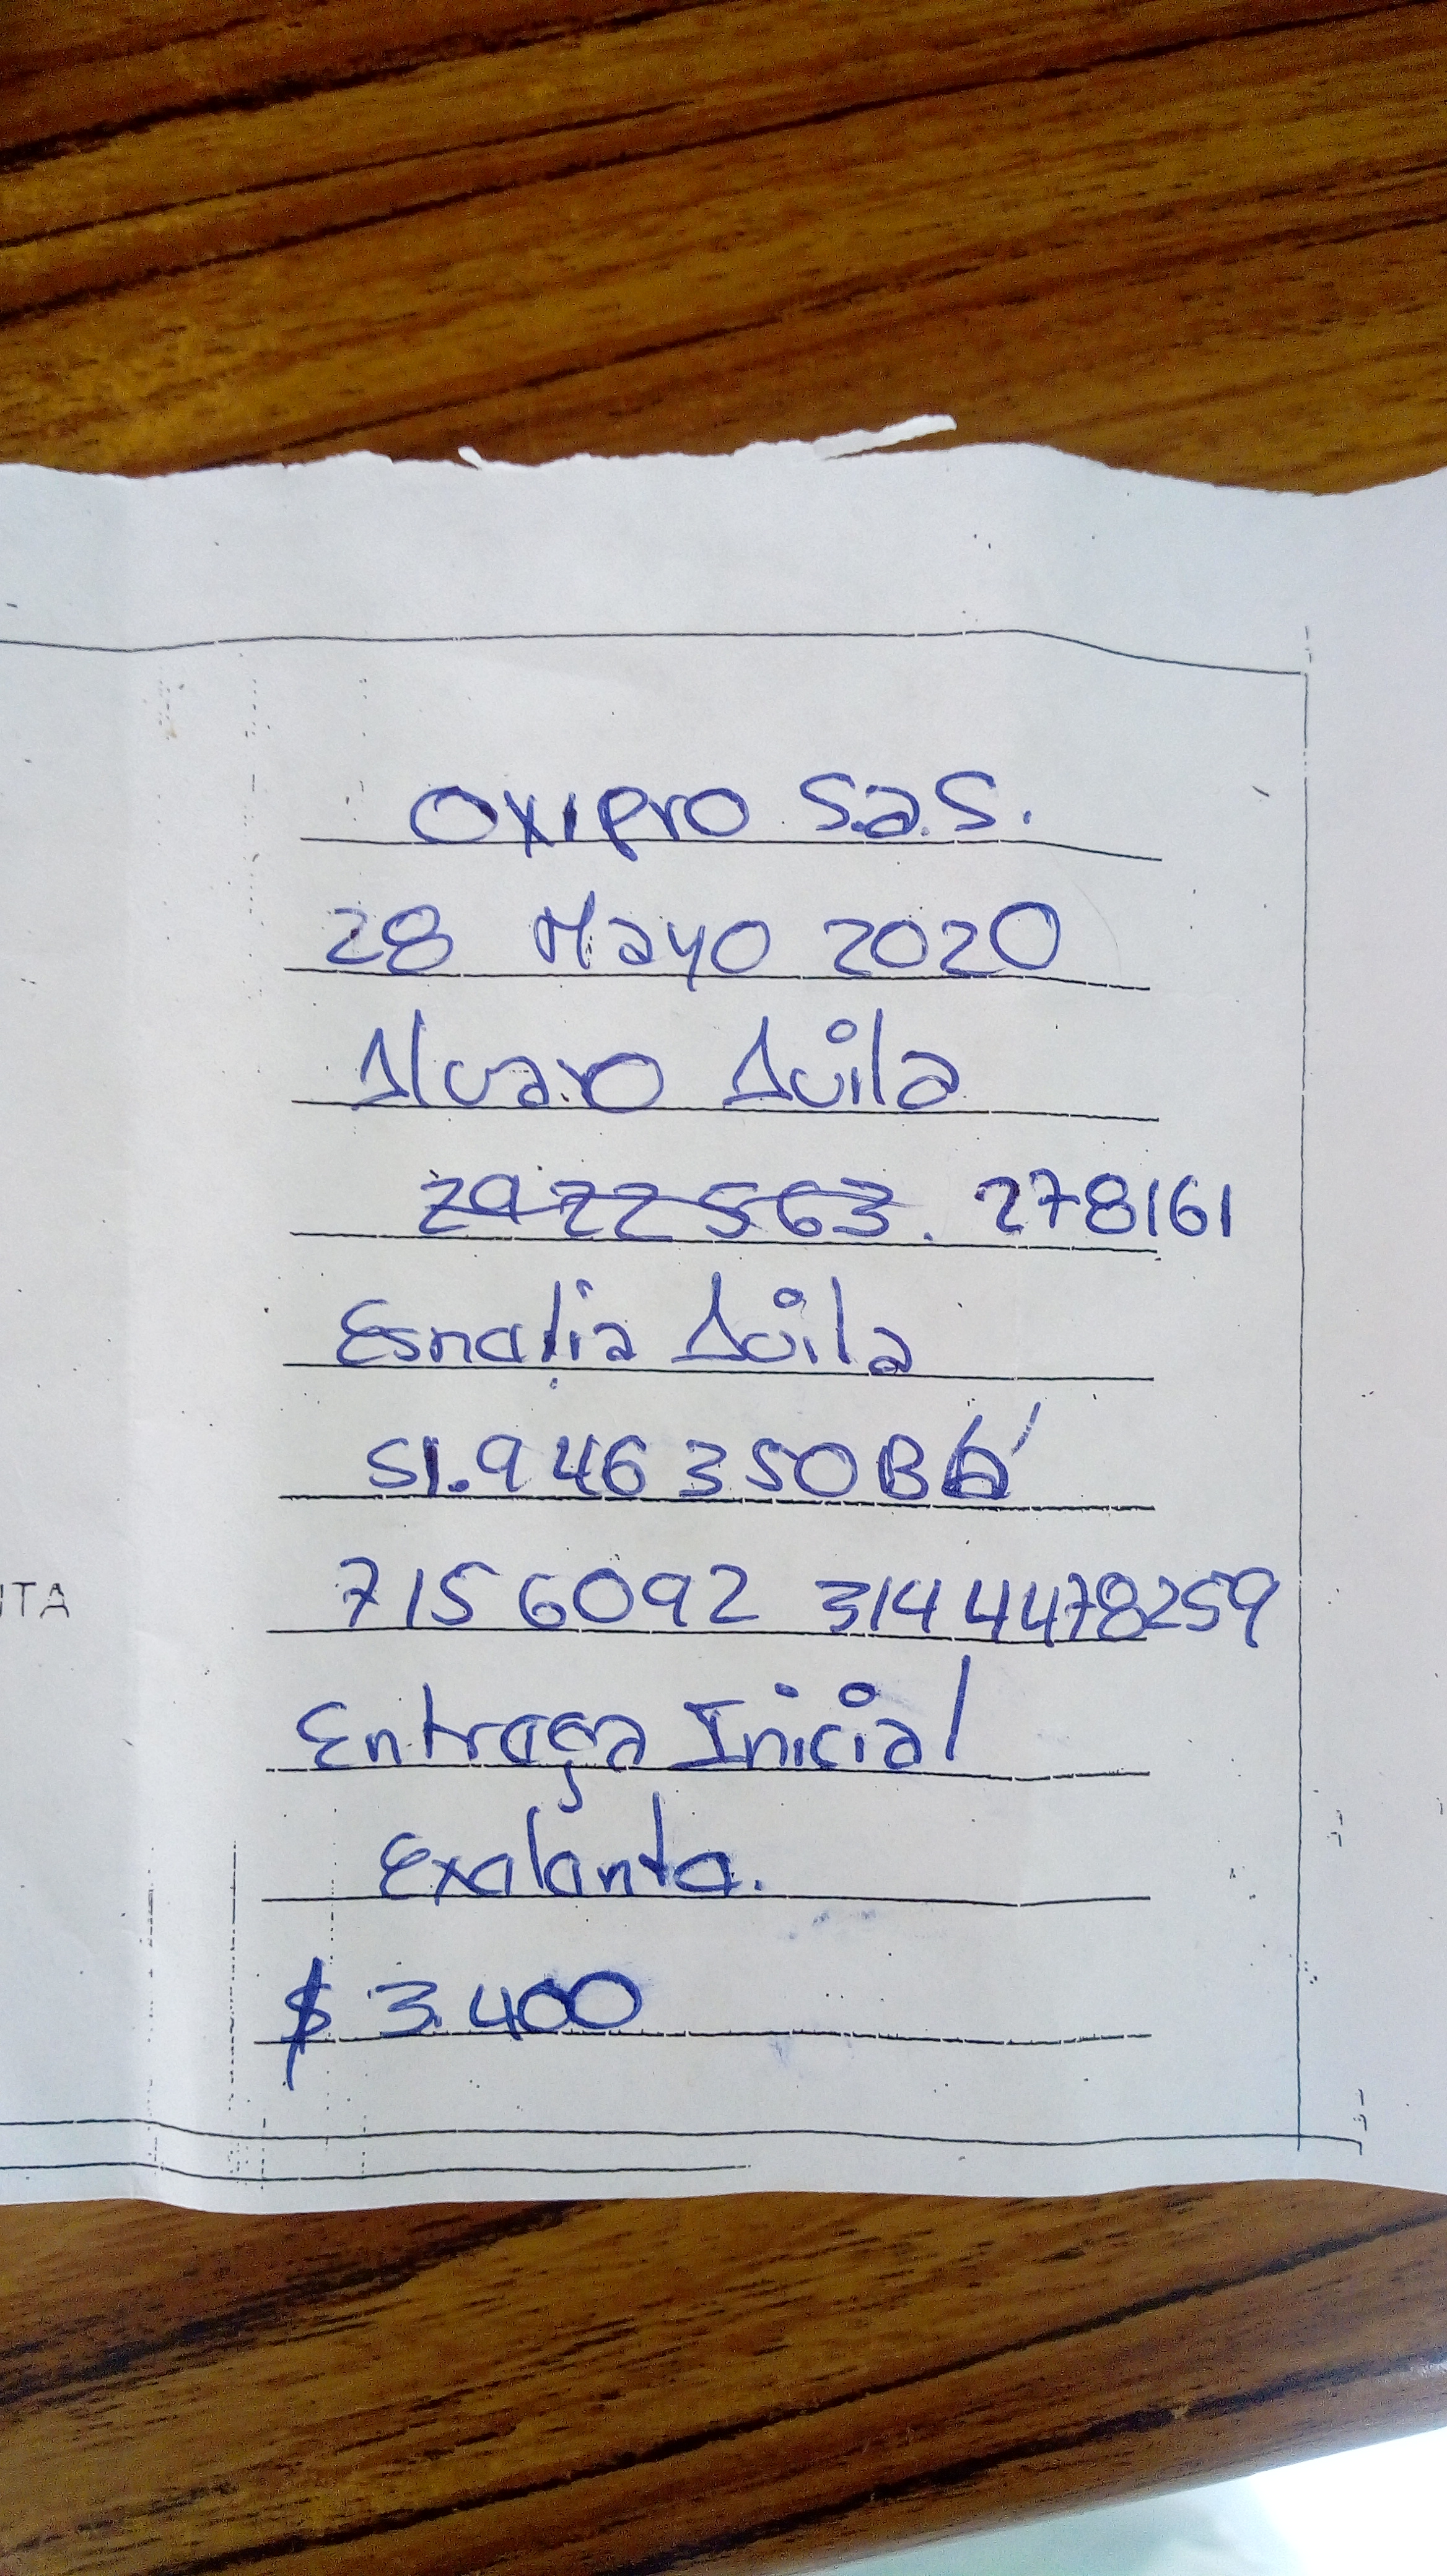 Oxipro S.a.S.
28 Mayo 2020
Alvaro Avila
2922563. 278161
Esnatia Avila
51.946350 Btá
7156092 3144478259
Entraga Inicial
Exalanta.
ITA
$ 3.400